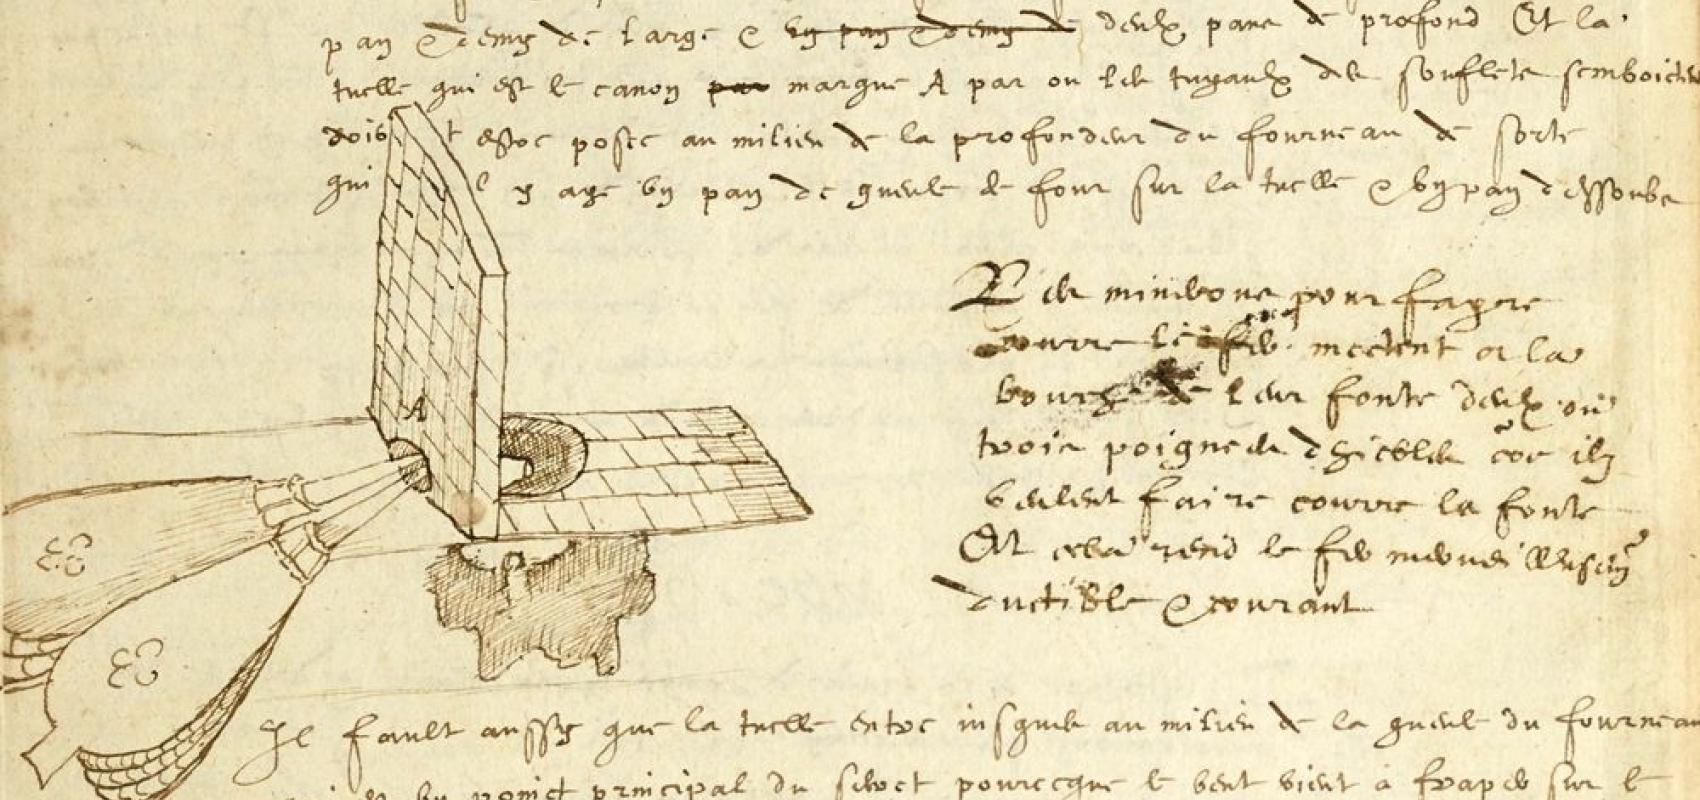 pan & demy de large & vn pan & demy de deulx pans de profond Et la
tuelle qui est le canon par marque A par ou les tuyaulx des souflets semboictent
doibt estre posee au milieu de la profondeur du fourneau de sorte
quil y aye vn pan de gueule de four sur la tuelle & vn pan dessoubs
A
Les minerons pour fayre
courre le fer mectent a la
de leur fonte deulx ou
trois poignees dhiebles coe ilz
veulent faire courre la fonte
Et cela rend le fer
ductible & courant
Il fault aussy que la tuelle entre jusques au milieu de la gueule du fourneau
vn poinct principal du secret pourceque le vent vient a fraper sur le